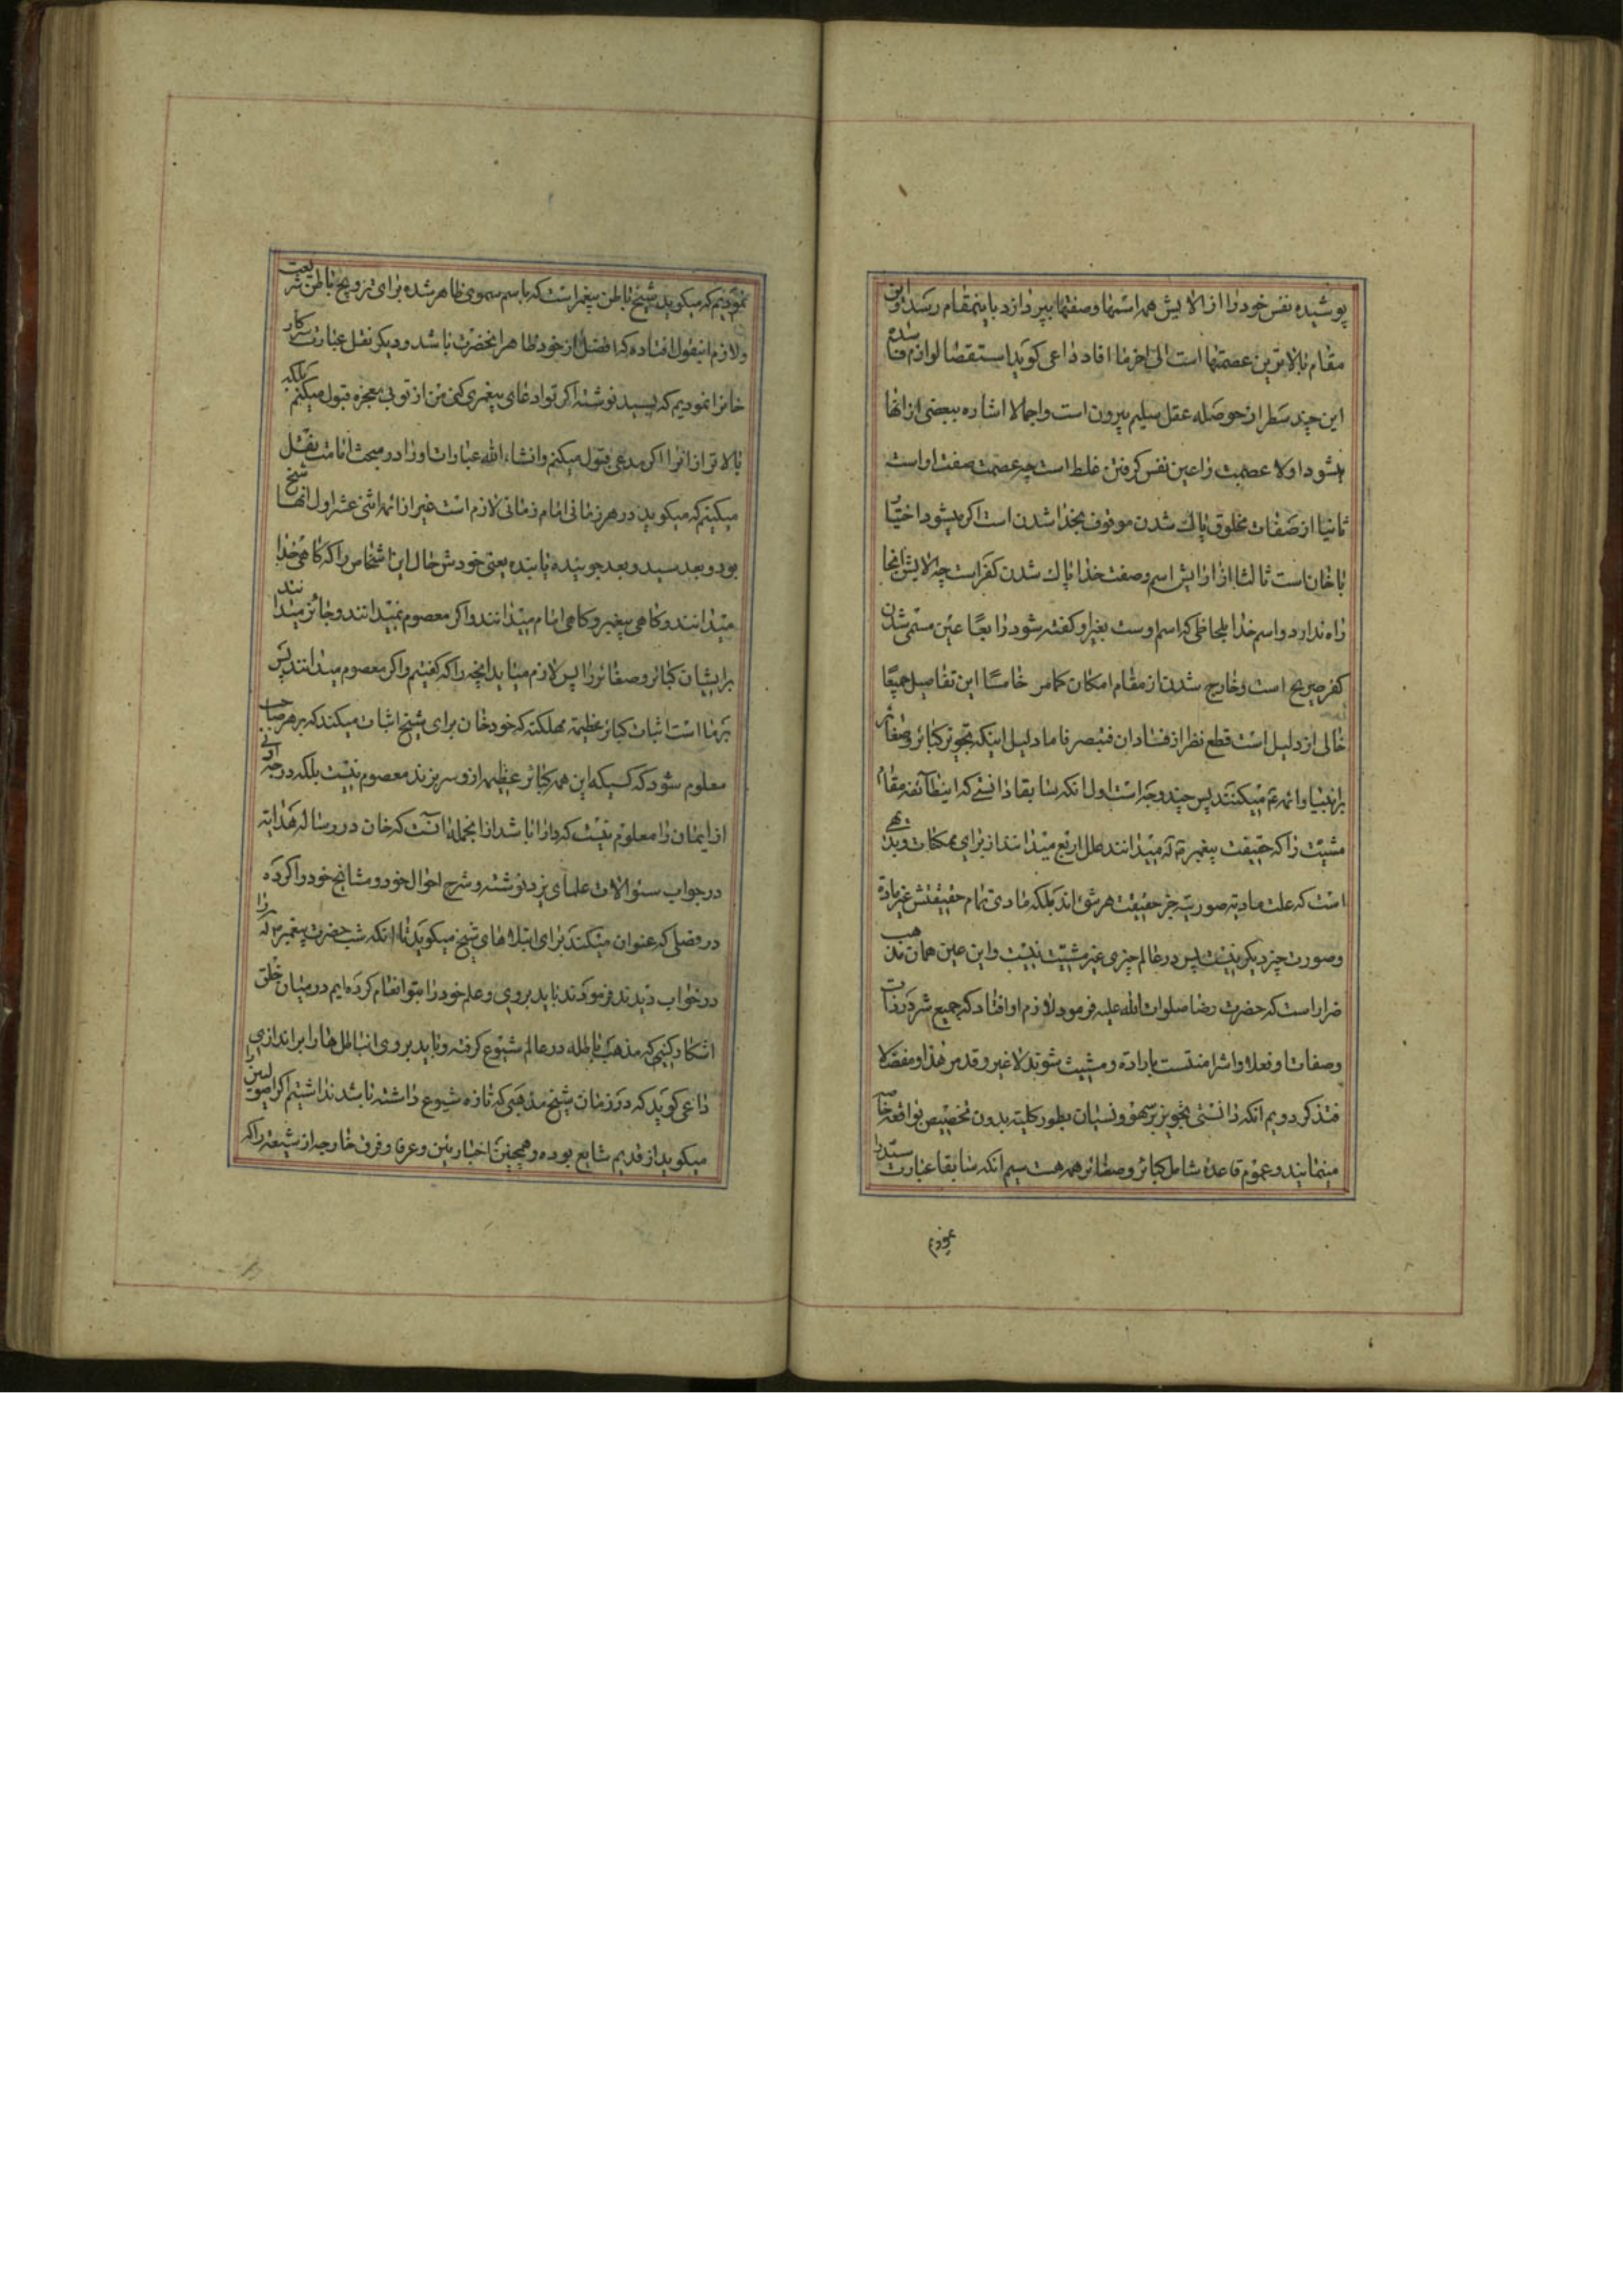 پوشیده نفس خود را از الایش همه اسمها وصفتها بپردازد باینمقام رسد واین
مقام بالاترین عصمتها است الی اخر ما افاد داعی کوید استقصا لوازم فاسده
این چند سطر از حوصله عقل سلیم بیرون است واجمالا اشاره ببعضی از انها
میشود اولا عصمت را عین نفس کرفتن غلط است چه عصمت صفت اواست
ثانیا از صفات مخلوق پاک شدن موقوف بخدا شدن است اکر میشود اختیار
با خان است ثالثا از ارایش اسم وصفت خدا پاک شدن کفر است چه الایش انجا
راه ندارد واسم خدا بلحاظی که اسم اوست بغیر او کفته شود رابعا عین مسمی شدن
کفر صریح است وخارج شدن از مقام امکان کما مر خامسا این تفاصیل جمیعا
خالی از دلیل است قطع نظر از فساد ان فتبصر فاما دلیل اینکه تجویز کبائر وصغائر
بر انبیا وائمه ع میکنند پس چند وجه است اول انکه سابقا دانستی که اینطائفه مقام
مشیت را که حقیقت پیغمبر ص میدانند علل اربع میدانند از برای ممکنات وبدیهی
است که علت مادیه صوریه جز حقیقت هر شئ اند بلکه مادی تمام حقیقتش غیر ماده
وصورت چیز دیکر نیست پس در عالم چیزی غیر مشیت نیست واین عین همان مذهب
ضرار است که حضرت رضا صلوات الله علیه فرمود لازم او افتاد که جمیع شر در ذات
وصفات او فعلا واشرا منتسب باراده ومشیت شوند لا غیر وقد مر هذا ومفصلا
فتذکر دویم انکه دانستی تجویز بر سهو ونسیان بطور کلیه بدون تخصیص بواقعه خاصه
مینمایند وعموم قاعده شامل کبائر وصغائر همه هست سیم انکه سابقا عبارت سید را
نمودیم
نمودیم که میکوید شیخ باطن پیغمبر است که باسم سموی ظاهر شده برای ترویج باطن شریعت
ولازم اینقول افتاده که افضل از خود ظاهر انحضرت باشد ودیکر نقل عبارت سرکار
خانرا نمودیم که بسید نوشته اکر تو ادعای پیغمبری کنی من از تو بی معجزه قبول میکنم بلکه
بالاتر از انرا اکر مدعی قبول میکنم وانشاء الله عبارات اورا در مبحث امامت نقل
میکنیم که میکوید در هر زمانی امام زمانی لازم است غیر از ائمه اثنی عشر اول انها شیخ
بود وبعد سید وبعد جوینده یابنده یعنی خودش حال این اشخاص را که کاهی خدا
میدانند وکاهی پیغمبر وکاهی امام میدانند واکر معصوم نمیدانند وجائز میدانند
بر ایشان کبائر وصغائر را پس لازم میاید انچه را که کفتیم واکر معصوم میدانند پس
بر ما است اثبات کبائر عظیمه مهلکه که خود خان برای شیخ اثبات میکند که بر هر صاحب
معلوم شود که کسیکه این همه کبائر عظیمه از او سر بزند معصوم نیست بلکه درجه ادنی
از ایمان را معلوم نیست که دارا باشد از انجمله انست که خان در رساله هدایه
در جواب سئوالات علمای یزد نوشته وشرح احوال خود ومشایخ خود را کرده
در فصلی که عنوان میکند برای ابتلاهای شیخ میکوید تا انکه شب حضرت پیغمبر ص را
در خواب دیدند فرمودند باید بروی وعلم خود را بتو انعام کرده ایم در میان خلق
اشکار کنی که مذهب باطله در عالم شیوع کرفته وباید بروی انباطل ها را براندازی
داعی کوید که در زمان شیخ مذهبی که تازه شیوع داشته باشد نداشتیم اکر اصولیین را
میکوید از قدیم شایع بوده وهمچنین اخباریین وعرفا وفرق خارجه از شیعه را که